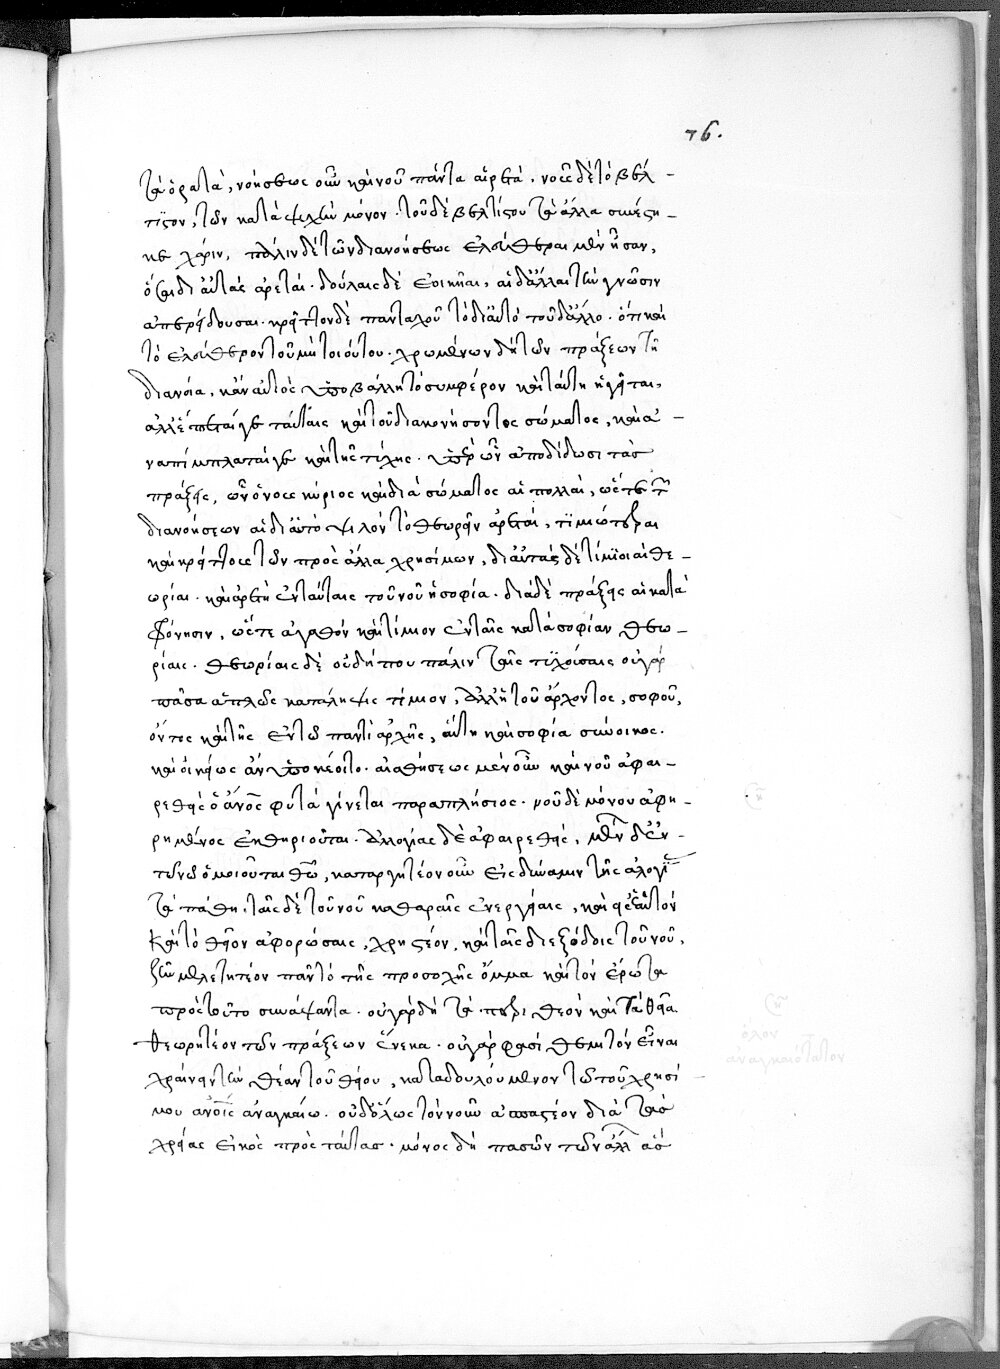 76.
τὰ ὁρατά, νοήσεως οὖν καὶ νοῦ πάντα αἱρετά. νοῦς δὲ τὸ βέλ-
τιστον, τῶν κατὰ ψυχὴν μόνον. τοῦ δὲ βελτίστου τὰ ἄλλα συνέστη-
κε χάριν, πάλιν δὲ τῶν διανοήσεως ἐλεύθεραι μὲν ἦσαν,
ὅσαι δι αὑτὰς αἱρεταί. δούλαις δὲ ἐοικυῖαι, αἱ δι ἄλλα τὴν γνῶσιν
ἀπερείδουσαι. κρεῖττον δὲ πανταχοῦ τὸ δι αὑτὸ τοῦ δι ἄλλο. ὅτι καὶ
τὸ ἐλεύθερον τοῦ μὴ τοιούτου. χρωμένων δὴ τῶν πράξεων τῇ
διανοίᾳ, κἂν αὐτὸς ὑποβάλλῃ τὸ συμφέρον καὶ ταύτῃ ἡγῆται,
ἀλλ' ἕπεταί γε ταύταις καὶ τοῦ διακονήσοντος σώματος, καὶ ἀ-
ναπίμπλαταί γε καὶ τῆς τύχης. ὑπὲρ ὧν ἀποδίδωσι τὰς
πράξεις, ὧν ὁ νοῦς κύριος καὶ διὰ σώματος αἱ πολλαί, ὥστε τῶν
διανοήσεων αἱ δι αὐτὸ ψιλὸν τὸ θεωρεῖν αἱρεταί, τιμιώτεραι
καὶ κρείττους τῶν πρὸς ἄλλα χρησίμων, δι αὑτὰς δὲ τίμιοι αἱ θε-
ωρίαι. καὶ αἱρετὴ ἐν ταύταις τοῦ νοῦ ἡ σοφία. διὰ δὲ πράξεις αἱ κατὰ
φρόνησιν, ὥστε ἀγαθὸν καὶ τίμιον ἐν ταῖς κατὰ σοφίαν θεω-
ρίαις. θεωρίαις δὲ οὐ δήπου πάλιν ταῖς τυχούσαις οὐ γὰρ
πᾶσα ἁπλῶς κατάληψις τίμιον, ἀλλ' ἡ τοῦ ἄρχοντος, σοφοῦ,
ὄντος καὶ τῆς ἐν τῷ παντὶ ἀρχῆς, αὕτη καὶ σοφία σύνοικος.
καὶ οἰκείως ἂν ὑποκέοιτο. αἰσθήσεως μὲν οὖν καὶ νοῦ ἀφαι-
ρεθεὶς ὁ ἄνος φυτᾶ γίνεται παραπλήσιος. νοῦ δὲ μόνου ἀφῃ-
ρημένος ἐκθηριοῦται. ἀλογίας δὲ ἀφαιρεθείς, μένων δ' ἐν
τῶ νῶ ὁμοιοῦται θεῶ, καταργητέον οὖν εἰς δύναμιν τῆς ἀλογί
τὰ πάθη, ταῖς δὲ τοῦ νοῦ καθαραῖς ἐνεργείαις, καὶ πρὸς ἑαυτὸν
καὶ τὸ θεῖον ἀφορώσαις, χρηστέον, καὶ ταῖς διεξόδοις τοῦ νοῦ,
ζῆν μελετητέον πᾶν τὸ τῆς προσοχῆς ὄμμα καὶ τὸν ἔρωτα
πρὸς τοῦτο συνάψαντα. οὐ γὰρ δὴ τὰ περὶ θεὸν καὶ τὰ θεῖα
θεωρητέον τῶν πράξεων ἕνεκα. οὐ γάρ φασι θεμιτὸν εἶναι
χραίνειν τὴν θέαν τοῦ θείου, καταδουλούμενον τῶ τοῦ χρησί
μου ἀνοις ἀναγκαίω. οὐδ' ὅλως τὸν νοῦν ἀποσπαστέον διὰ τὰς
χρείας εἰκὸς πρὸς ταύτας. μόνος δὴ πασῶν τῶν ἄλλ ἀς
ὅλον
ἀναγκαιότατον